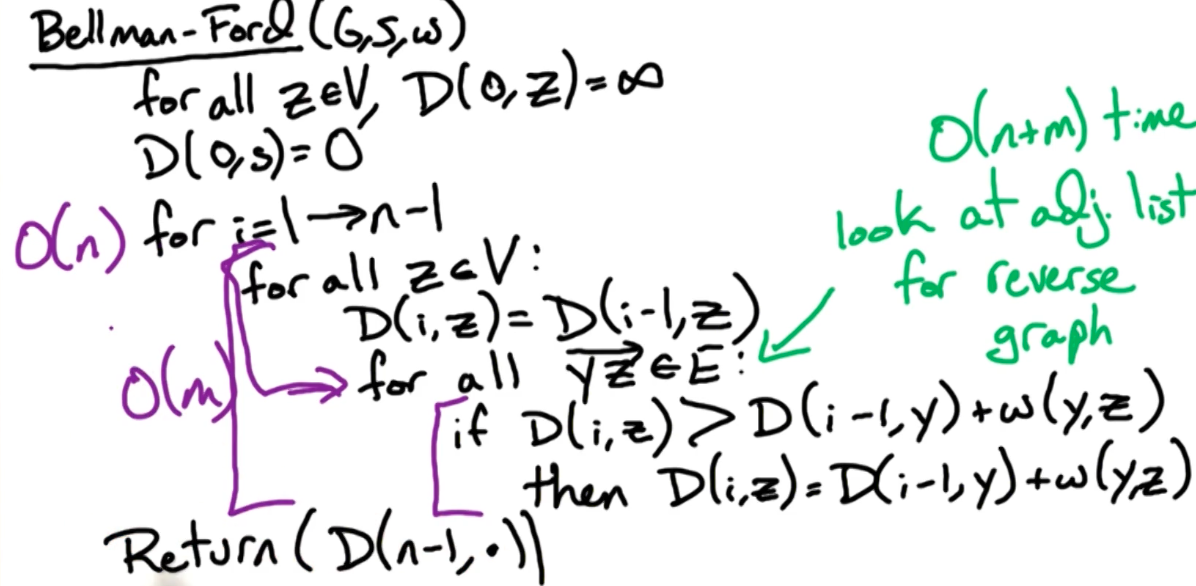 Bellman-Ford (G,S,w)
for all z∈V, D(0,z)=∞
D(0,s)=0
O(n) for i=1→n-1
for all z∈V:
D(i,z)=D(i-1,z)
O(m) for all yz∈E:
if D(i,z)>D(i-1,y)+w(y,z)
then D(i,z)=D(i-1,y)+w(y,z)
Return(D(n-1,·))
O(n+m) time
look at adj. list
for reverse
graph